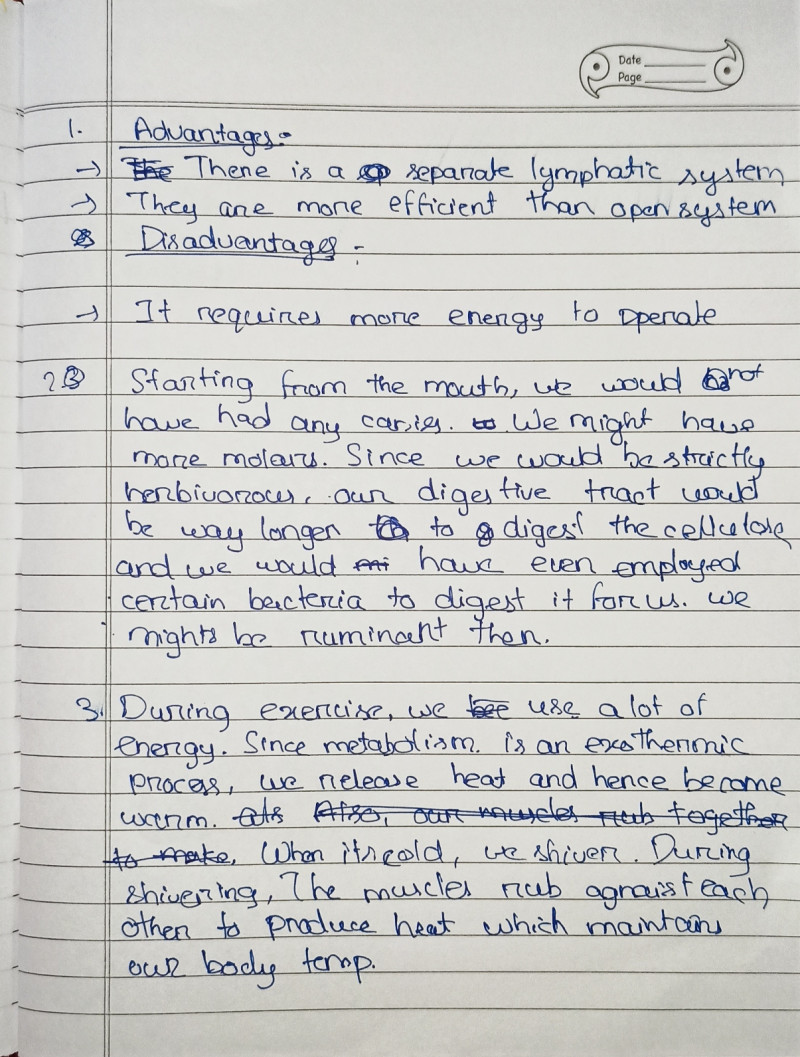 Date
Page
1. Advantages:-
→ There is a separate lymphatic system
→ They are more efficient than open system
Disadvantages :-
→ It requires more energy to operate
2. Starting from the mouth, we would not
have had any caries. We might have
more molars. Since we would be strictly
herbivorous, our digestive tract would
be way longer to digest the cellulose
and we would have even employed
certain bacteria to digest it for us. we
might be ruminant then.
3. During exercise, we use a lot of
energy. Since metabolism is an exothermic
process, we release heat and hence become
warm. Also, our muscles rub together
to make, When its cold, we shiver. During
shivering, The muscles rub against each
other to produce heat which maintains
our body temp.